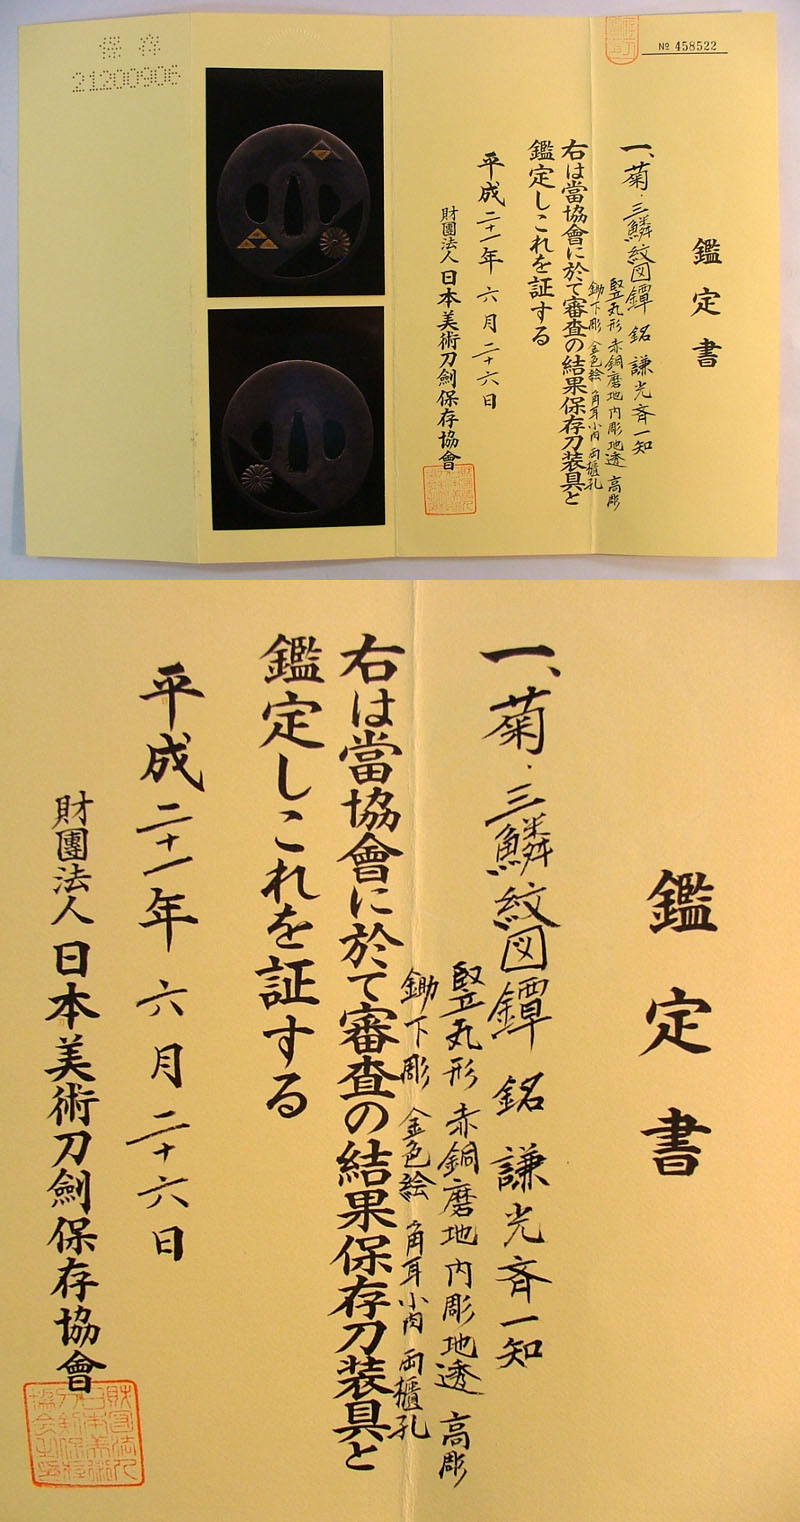 保存
21200906
№ 458522
鑑定書
一、菊・三鱗紋図鐔 銘 謙光斉一知
竪丸形 赤銅磨地 内彫地透 高彫
鋤下彫 金色絵 角耳小肉 両櫃孔
右は當協會に於て審査の結果保存刀装具と
鑑定しこれを証する
平成二十一年 六月二十六日
財團法人 日本美術刀劍保存協會
鑑定書
一、菊・三鱗紋図鐔 銘 謙光斉一知
竪丸形 赤銅磨地 内彫地透 高彫
鋤下彫 金色絵 角耳小肉 両櫃孔
右は當協會に於て審査の結果保存刀装具と
鑑定しこれを証する
平成二十一年 六月二十六日
財團法人 日本美術刀劍保存協會